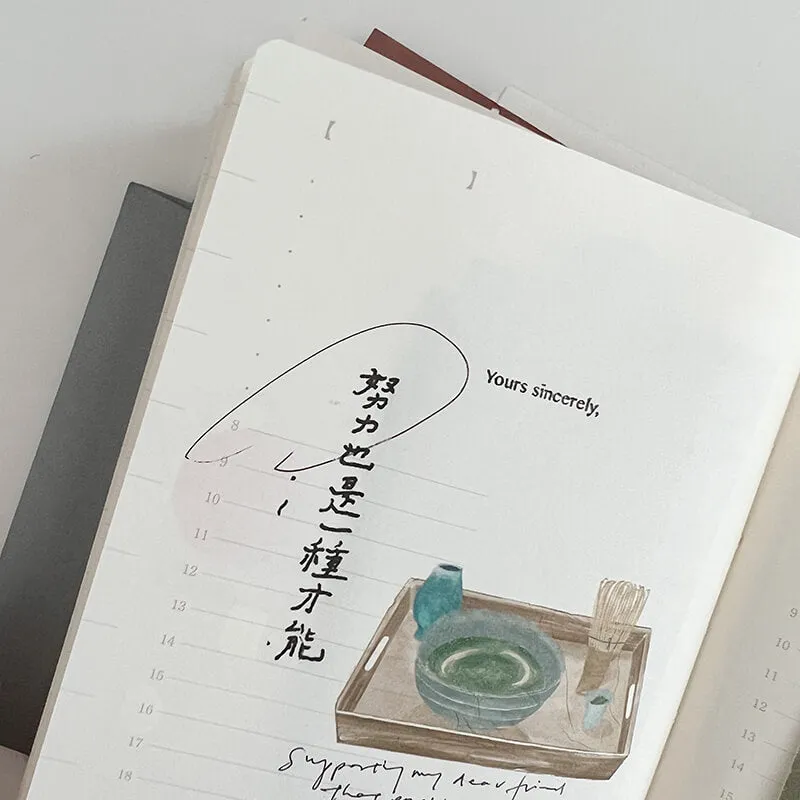 【 】
Yours sincerely,
努力也是一種才能
8
9
10
11
12
13
14
15
16
17
18
Supporting my dear friend
9
10
11
12
13
14
15